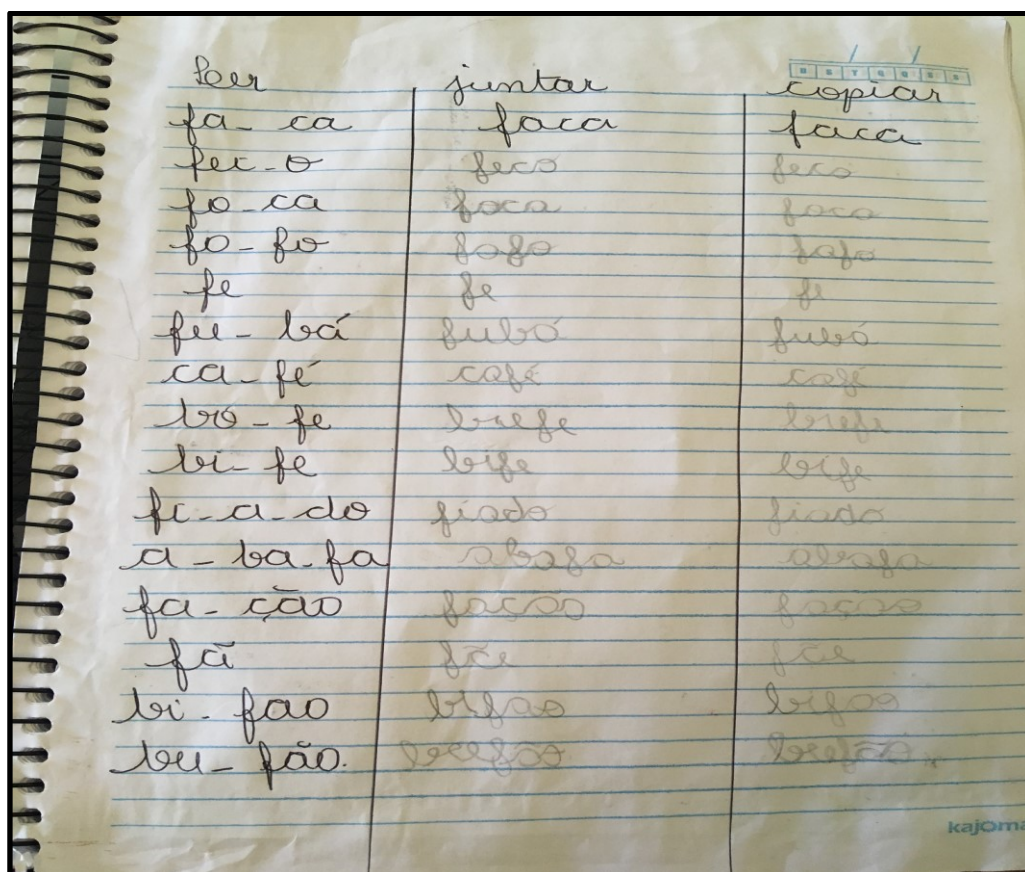 D S T Q Q S S
ler juntar copiar
fa-ca faca faca
fec-o feco feco
fo-ca foca foca
fo-fo fofo fofo
fe fe fe
fu-bá fubá fubá
ca-fé café café
bo-fe
bi-fe bife bife
fi-a-do fiado fiado
a-ba-fa abafa abafa
fa-ção fação
fã
bi-fao bifao bifao
bu-fão. bufão bufão
kajoma